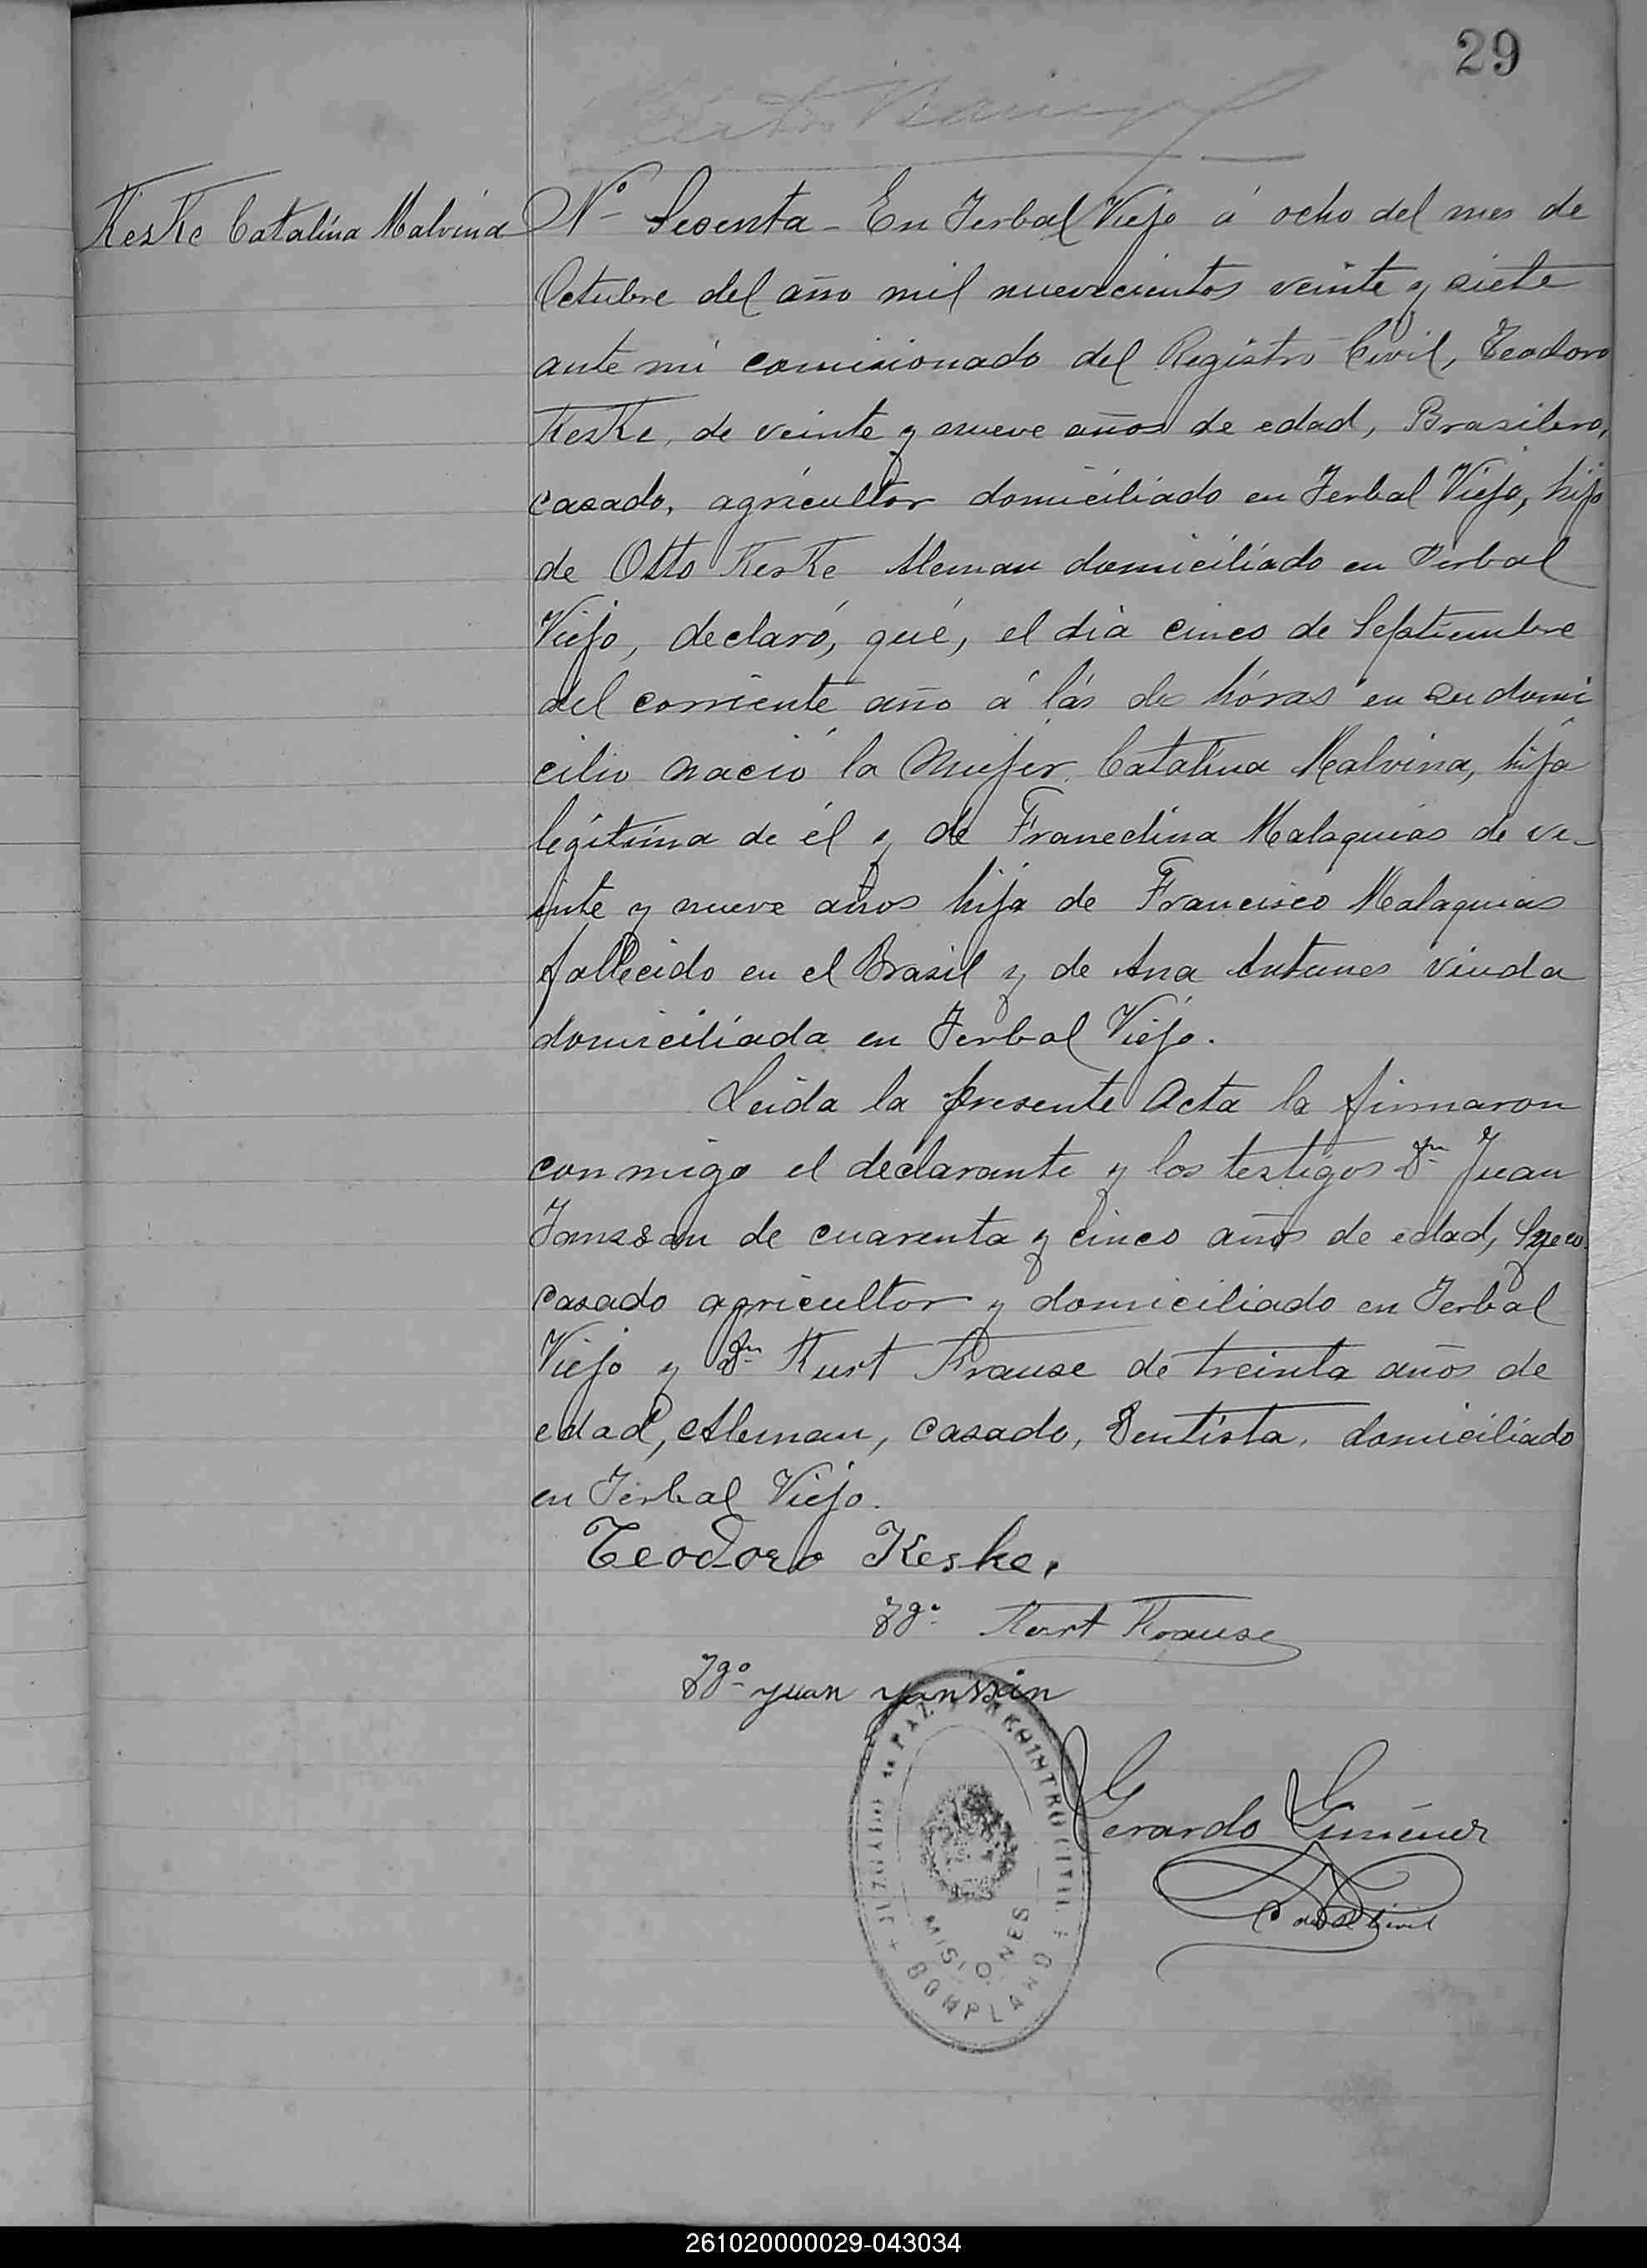 29
Keske Catalina Malvina
Nº Sesenta - En Yerbal Viejo á ocho del mes de
Octubre del año mil nuevecientos veinte y siete
ante mi comisionado del Registro Civil, Teodoro
Keske, de veinte y nueve años de edad, Brasilero,
casado, agricultor domiciliado en Yerbal Viejo, hijo
de Otto Keske Aleman domiciliado en Yerbal
Viejo, declaró, qué, el dia cinco de Septiembre
del corriente año á lás horas en su domi
cilio nació la Mujer Catalina Malvina, hija
legitima de él y de Franedina Malaquias de ve-
inte y nueve años hija de Francisco Malaquias
fallecido en el Brasil y de Ana Antunes viuda
domiciliada en Yerbal Viejo.
Leida la presente Acta la firmaron
conmigo el declarante y los testigos Dn Juan
de cuarenta y cinco años de edad,
casado agricultor y domiciliado en Yerbal
Viejo y Dn Kurt Krause de treinta años de
edad, Aleman, casado, Dentista, domiciliado
en Yerbal Viejo.
Teodoro Keske.
Tgo. Kurt Krause
Tgo. yuan yanssin
JUZGADO de PAZ
MISIONES
BOMPLAND
Gerardo Giménez
Civil
261020000029-043034